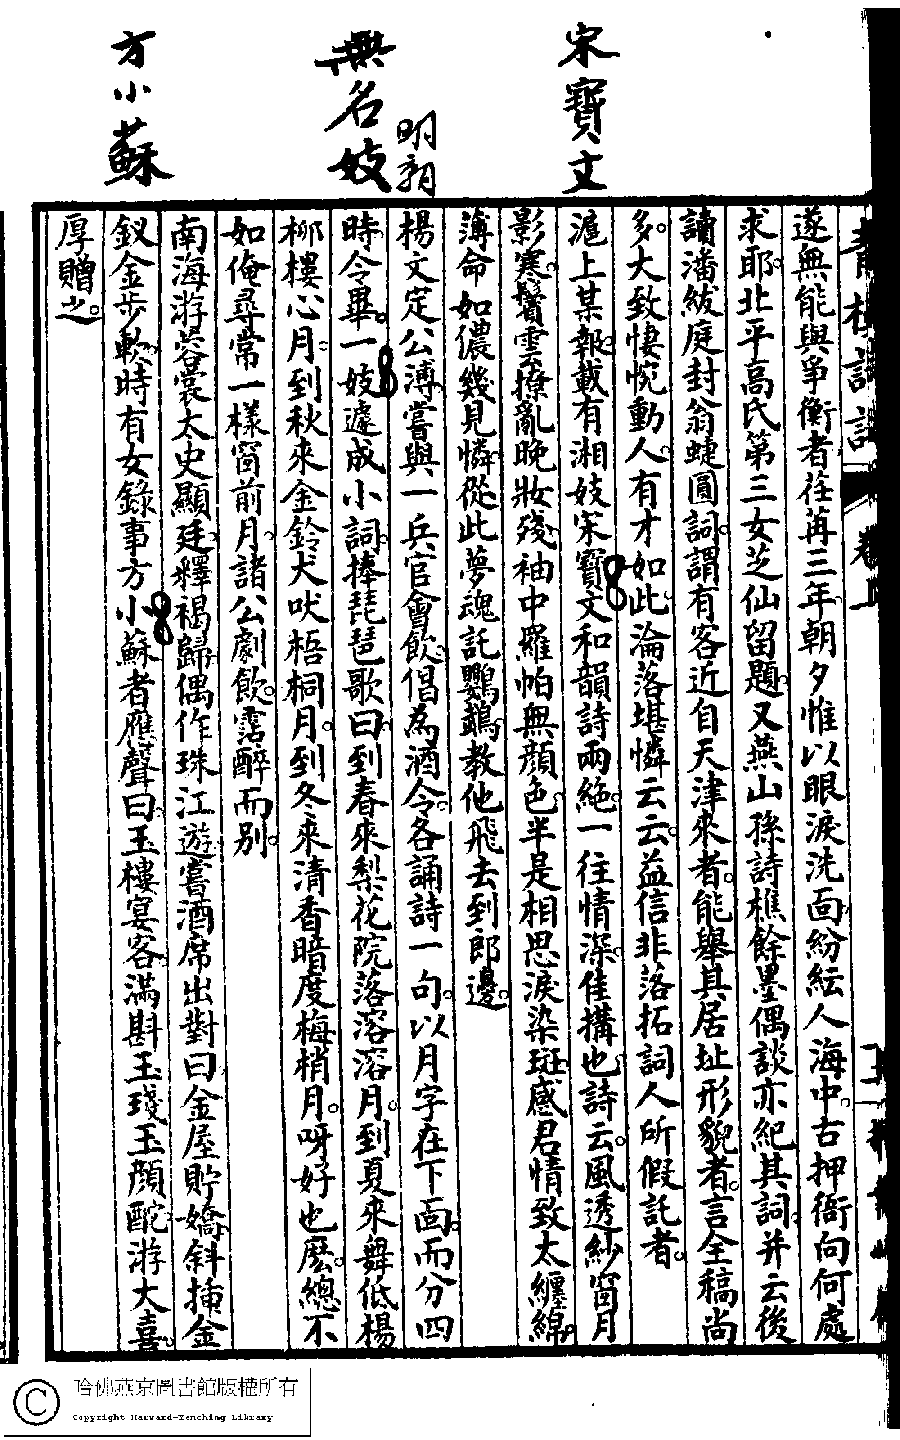 宋寶文
明朝
無名妓
方小蘇
遂無能與爭衡者荏苒三年朝夕惟以眼淚洗面紛紜人海中古押衙向何處
求耶北平高氏第三女芝仙留題又燕山孫詩樵餘墨偶談亦紀其詞并云後
讀潘紱庭封翁蜨圓詞謂有客近自天津來者能舉其居址形貌者言全稿尚
多大致悽惋動人有才如此淪落堪憐云云益信非落拓詞人所假託者
滬上某報載有湘妓宋寶文和韻詩兩絶一往情深佳搆也詩云風透紗窗月
影寒鬢雲撩亂晚妝殘袖中羅帕無顔色半是相思淚染斑感君情致太纏綿
薄命如儂幾見憐從此夢魂託鸚鵡教他飛去到郎邊
楊文定公溥嘗與一兵官會飲倡為酒令各誦詩一句以月字在下面而分四
時令畢一妓遽成小詞捧琵琶歌曰到春來梨花院落溶溶月到夏來舞低楊
柳樓心月到秋來金鈴犬吠梧桐月到冬來清香暗度梅梢月呀好也麽總不
如俺尋常一樣窗前月諸公劇飲霑醉而別
南海游蓉裳太史顯廷釋褐歸偶作珠江遊嘗酒席出對曰金屋貯嬌斜揷金
釵金步軟時有女錄事方小蘇者應聲曰玉樓宴客滿斟玉琖玉顔酡游大喜
厚贈之
哈佛燕京圖書館版權所有
Copyright Harvard-Yenching Library